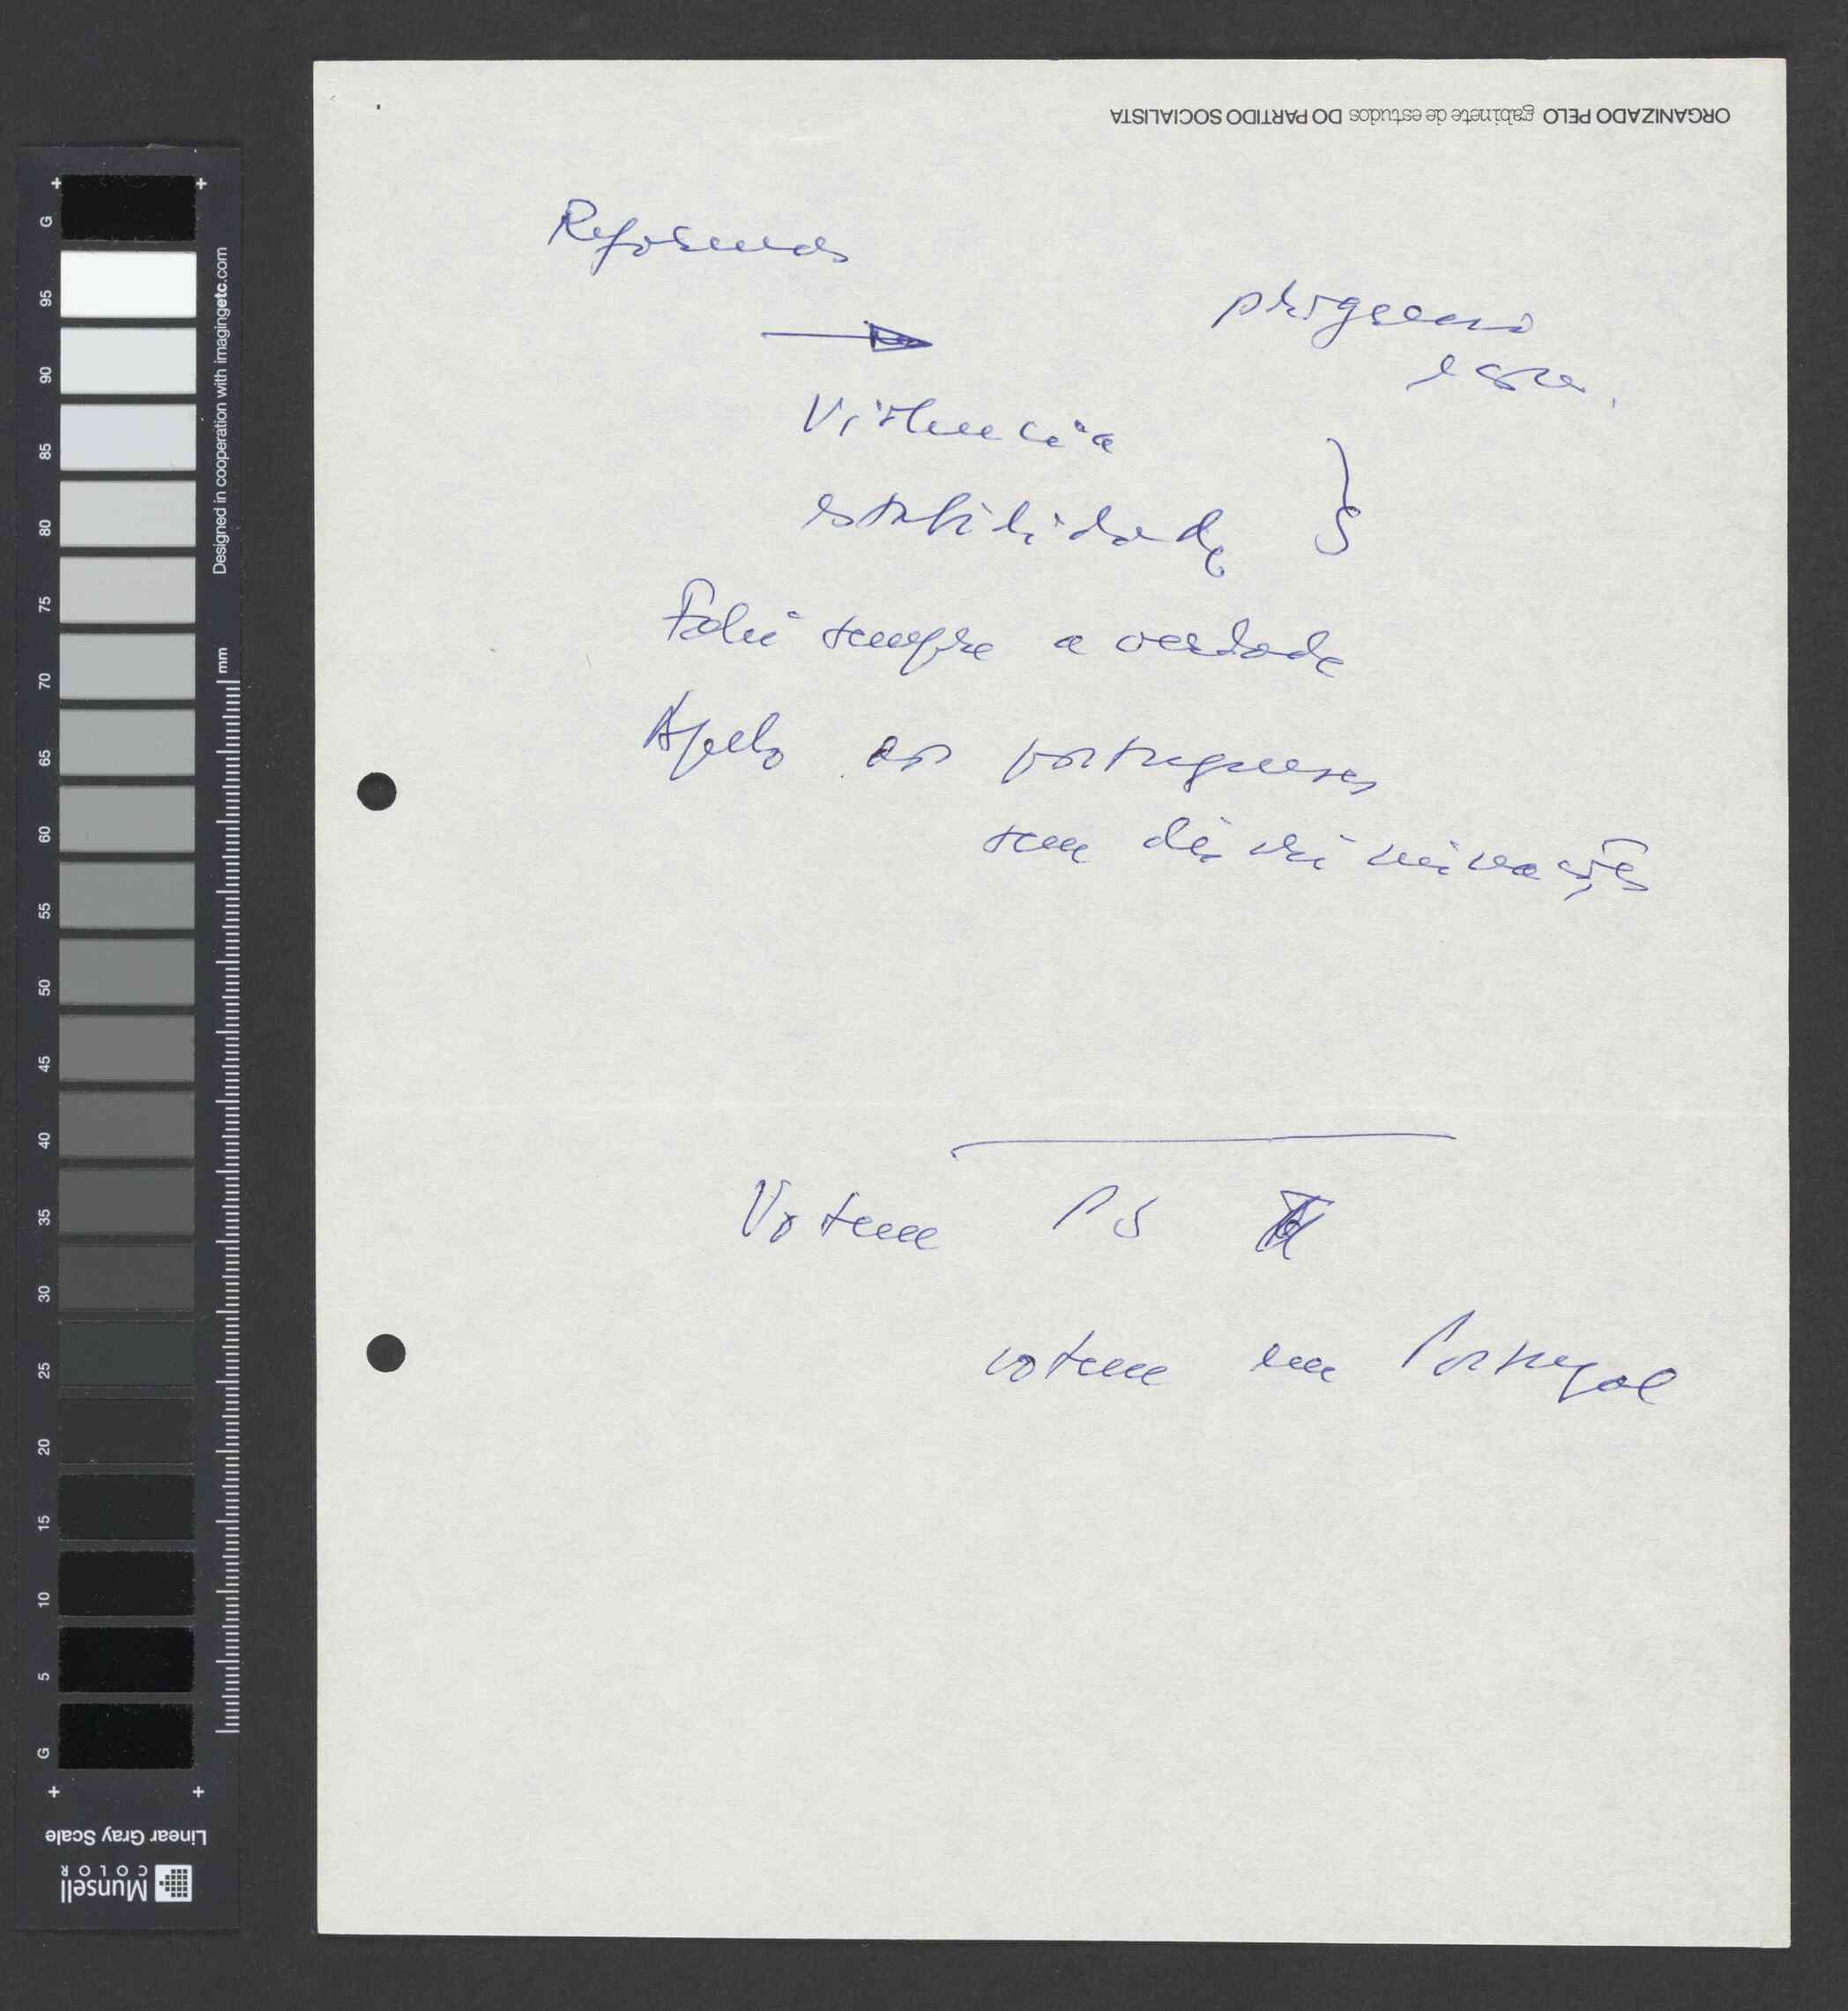 ORGANIZADO PELO gabinete de estudos DO PARTIDO SOCIALISTA
Reformas
programa
estabilidade
Falei sempre a verdade
Apelo aos portugueses
sem discriminações
Votem PS
votem em Portugal
G
95
90
85
80
75
70
65
60
55
50
45
40
35
30
25
20
15
10
5
G
Designed in cooperation with imagingetc.com
mm
Linear Gray Scale
Munsell
COLOR